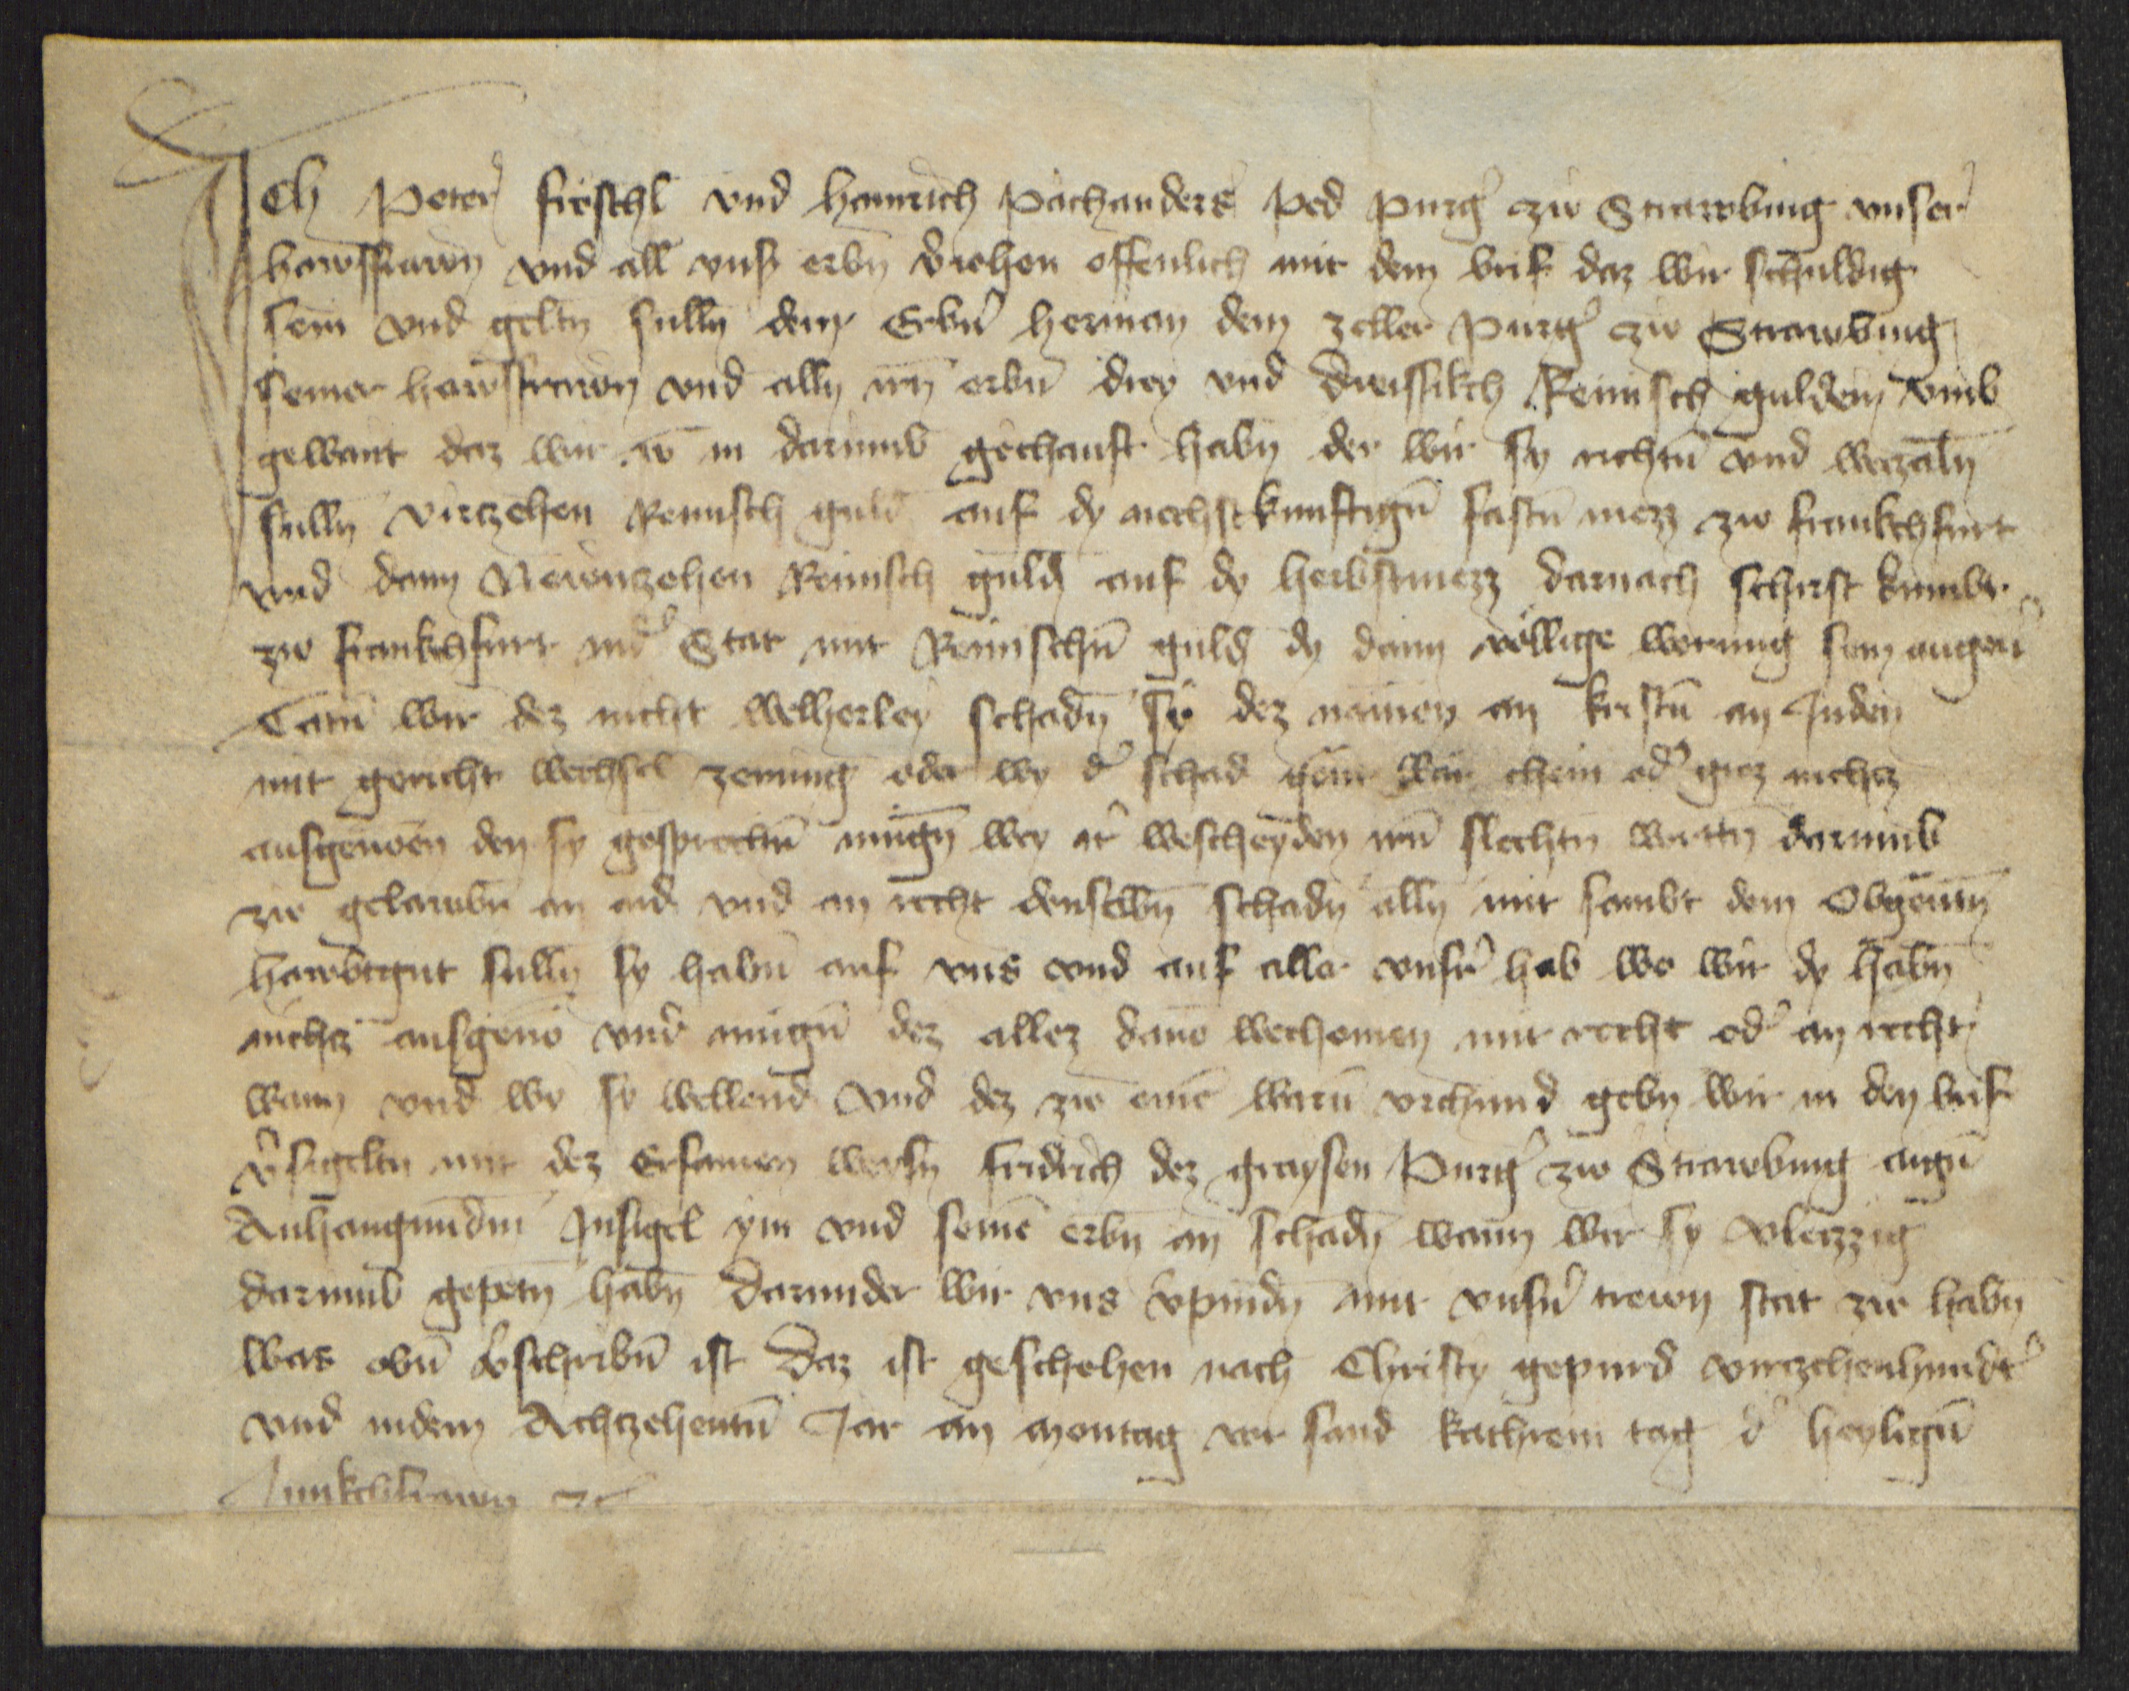 Ich Peter fröschl vnd hainrich pachanders ped purg' zw Strawbing vnser
hawsfrawn vnd all vns' erbn v'iehen offenlich mit dem brif daz wir schuldig
sein vnd geltn sulln dem Erbn' herman dem zeller purg' zw Strawbing
seiner hawsfrawn vnd alln irn erbn drey vnd dreissikch Reinisch guldein vmb
gewant daz wir vo in darumb gechauft habn der wir sy richtn vnd weczaln
sulln virczehen Reinisch guld auf dy nechstkunftign fastn mezz zw frankchfurt
vnd dann Newnczehen Reinisch guld auf dy herbstmezz darnach schirst kumbt
zw frankchfurt in d' Stat mit Reinischn guld dy dann völlige werung sein angeu'
Tatn wir dez nicht welherley schadn sy dez namen an kristn an Juden
mit gericht wechsel zerung oder wy d' schad gent wär chlein od' groz nichcz
ausgenomen den sy gesprechn mugn wey ir weschayden irn slechtn wortn darumb
zw gelawbn an aid vnd an recht denselbn schadn alln mit sambt dem Obgenantn
hawbtgut sulln sy habn auf vns vnd auf aller vnsr' hab wo wir dy habn
nichcz ausgeno vnd mugn dez allez dauo wechomen mit recht od' an recht
wann vnd wo sy wellend vnd dez zw eine warn vrchund gebn wir in den brif
v'sigeltn mit dez Ersamen weysn fridrich dez graysen Purg' zw Strawbing aign
Anhangundm Insigel ym vnd seine erbn an schadn wann wir sy vleizzig
darumb gepetn habn darunder wir vns v'pindn mit vnsn' trewn stat zw habn
was obn v'schribn ist Daz ist geschehen nach Christy gepurd virczehenhundt'
vnd in dem Achczehentn Jar an Montag vor sand kathrein tag d' heylign
Junkchfrawn ꝛc